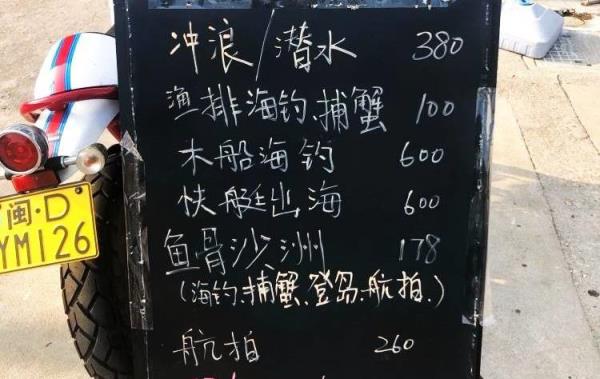 冲浪/潜水 380
渔排海钓、捕蟹 100
木船海钓 600
快艇出海 600
鱼骨沙洲 178
(海钓、捕蟹、登岛、航拍、)
航拍 260
闽·D
YM126